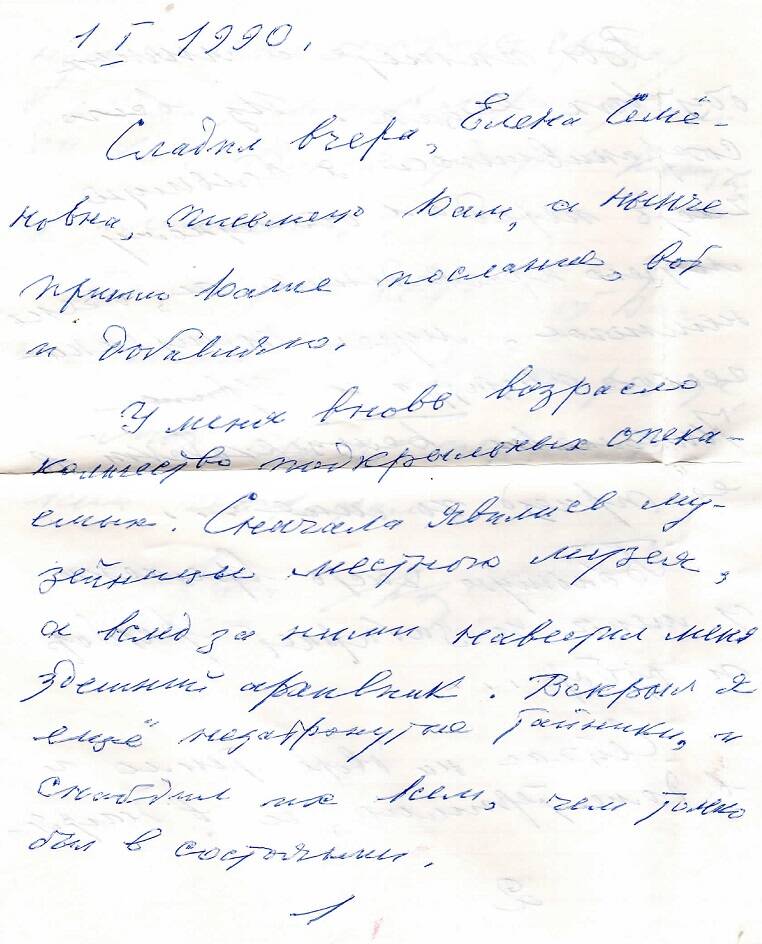 1 I 1990.
Сладил вчера, Елена Семё-
новна, письмецо Вам, а нынче
пришло Ваше послание, вот
и добавляю.
У меня вновь возрасло
количество подкрыльных опека-
емых. Сначала явились му-
зейницы местного музея,
а вслед за ними навестил меня
здешний архивник. Вскрыл я
ещё незатронутые тайники, и
снабдил их всем, чем только
был в состоянии.
1